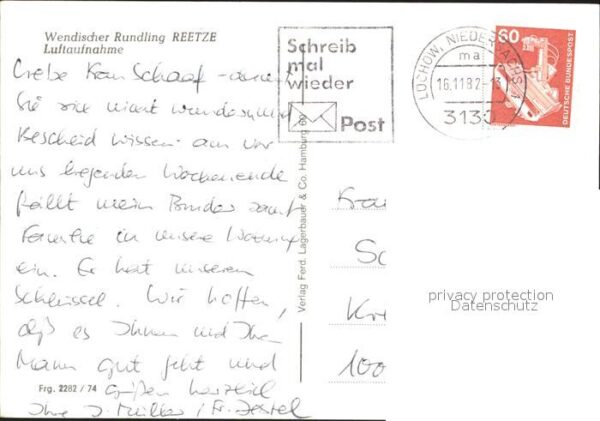 Wendischer Rundling REETZE
Luftaufnahme
Liebe Frau Schaaf - damit
Sie sich nicht wundern und
Bescheid wissen: am vor
uns liegenden Wochenende
fällt mein Bruder samt
Familie in unsere Wohnung
ein. Er hat unseren
Schlüssel. Wir hoffen,
daß es Ihnen und Ihrem
Mann gut geht und
grüßen herzlich
Ihre J. Müller /
Frg. 2282 / 74
Verlag Ferd. Lagerbauer & Co. Hamburg
Schreib
mal
wieder
Post
LÜCHOW, NIEDERSACHS 1
ma
16.11.82-13
3130
60
DEUTSCHE BUNDESPOST
Frau
Sc
Kre
100
privacy protection
Datenschutz